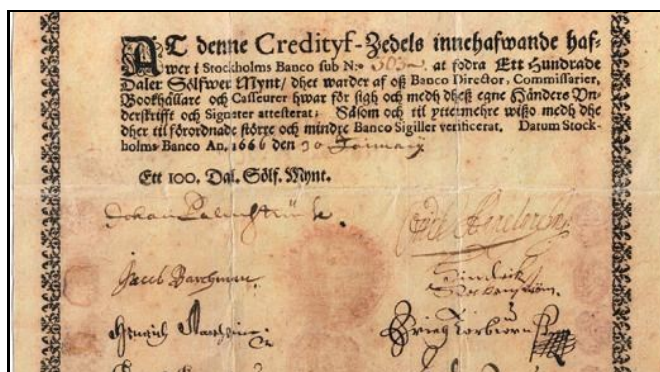 AT denne Credityf-Zedels innehafwande haf-
wer i Stockholms Banco sub N:o 303 at fodra Ett Hundrade
Daler Sölfwer Mynt/ dhet warder af oß Banco Director, Commissarier,
Bookhållare och Casseurer hwar för sigh och medh dheß egne Händers Vn-
derskrifft och Signeter attesterat; Såsom och til yttermehre wißo medh dhe
dher til förordnade större och mindre Banco Sigiller verificerat. Datum Stock-
holms Banco An. 1666 den 30 January
Ett 100. Dal. Sölf. Mynt.
Johan Palmstruck.
Jacob Barchman.